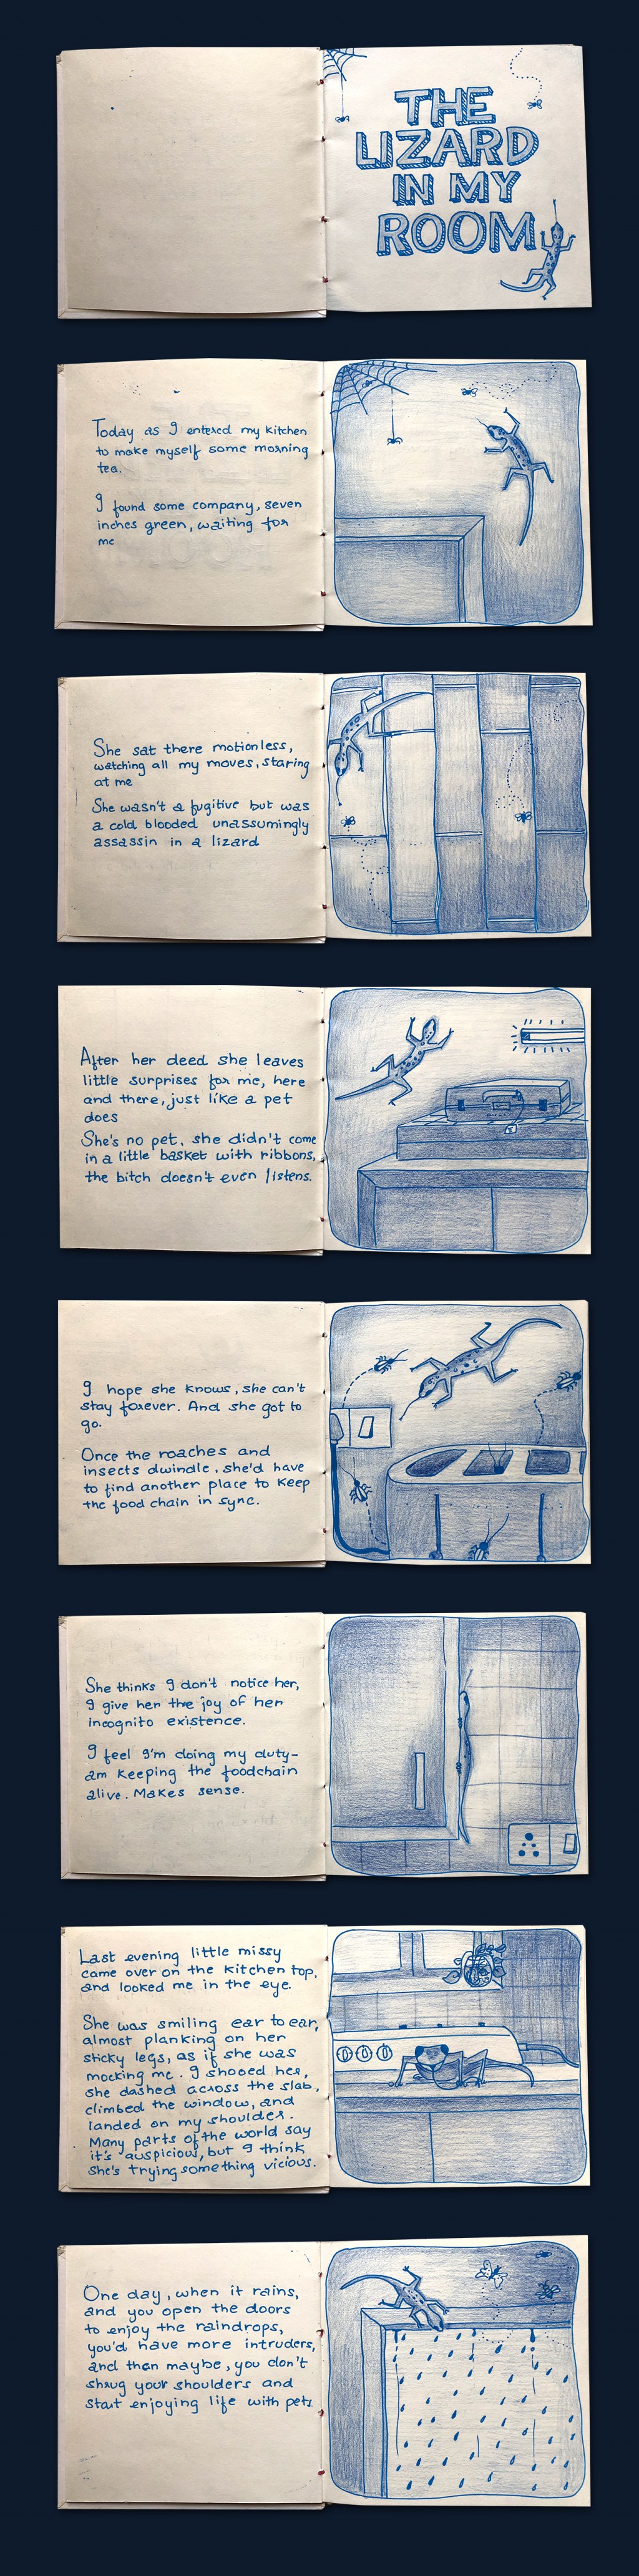 THE
LIZARD
IN MY
ROOM
Today as I entered my kitchen
to make myself some morning
tea.
I found some company, seven
inches green, waiting for
me
She sat there motionless,
watching all my moves, staring
at me
She wasn't a fugitive but was
a cold blooded unassumingly
assassin in a lizard
After her deed she leaves
little surprises for me, here
and there, just like a pet
does
She's no pet, she didn't come
in a little basket with ribbons,
the bitch doesn't even listens.
I hope she knows, she can't
stay forever. And she got to
go.
Once the roaches and
insects dwindle, she'd have
to find another place to keep
the food chain in sync.
She thinks I don't notice her,
I give her the joy of her
incognito existence.
I feel I'm doing my duty-
am keeping the foodchain
alive. Makes sense.
Last evening little missy
came over on the kitchen top,
and looked me in the eye.
She was smiling ear to ear,
almost planking on her
sticky legs, as if she was
mocking me. I shooed her,
she dashed across the slab,
climbed the window, and
landed on my shoulder.
Many parts of the world say
it's auspicious, but I think
she's trying something vicious.
One day, when it rains,
and you open the doors
to enjoy the raindrops,
you'd have more intruders,
and then maybe, you don't
shrug your shoulders and
start enjoying life with pets